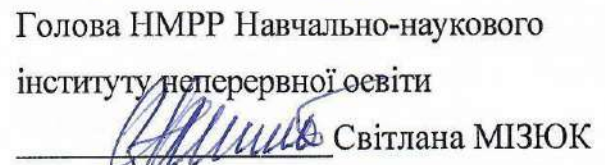 Голова НМРР Навчально-наукового
інституту неперервної освіти
Світлана МІЗЮК